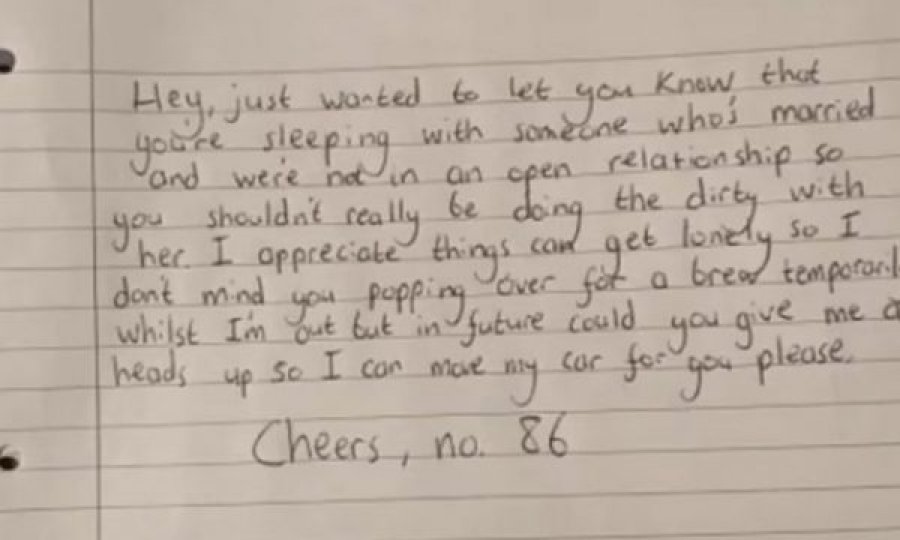 Hey, just wanted to let you know that
you're sleeping with someone who's married
and we're not in an open relationship so
you shouldn't really be doing the dirty with
her. I appreciate things can get lonely so I
don't mind you popping over for a brew temporaril
whilst I'm out but in future could you give me a
heads up so I can move my car for you please.
Cheers, no. 86